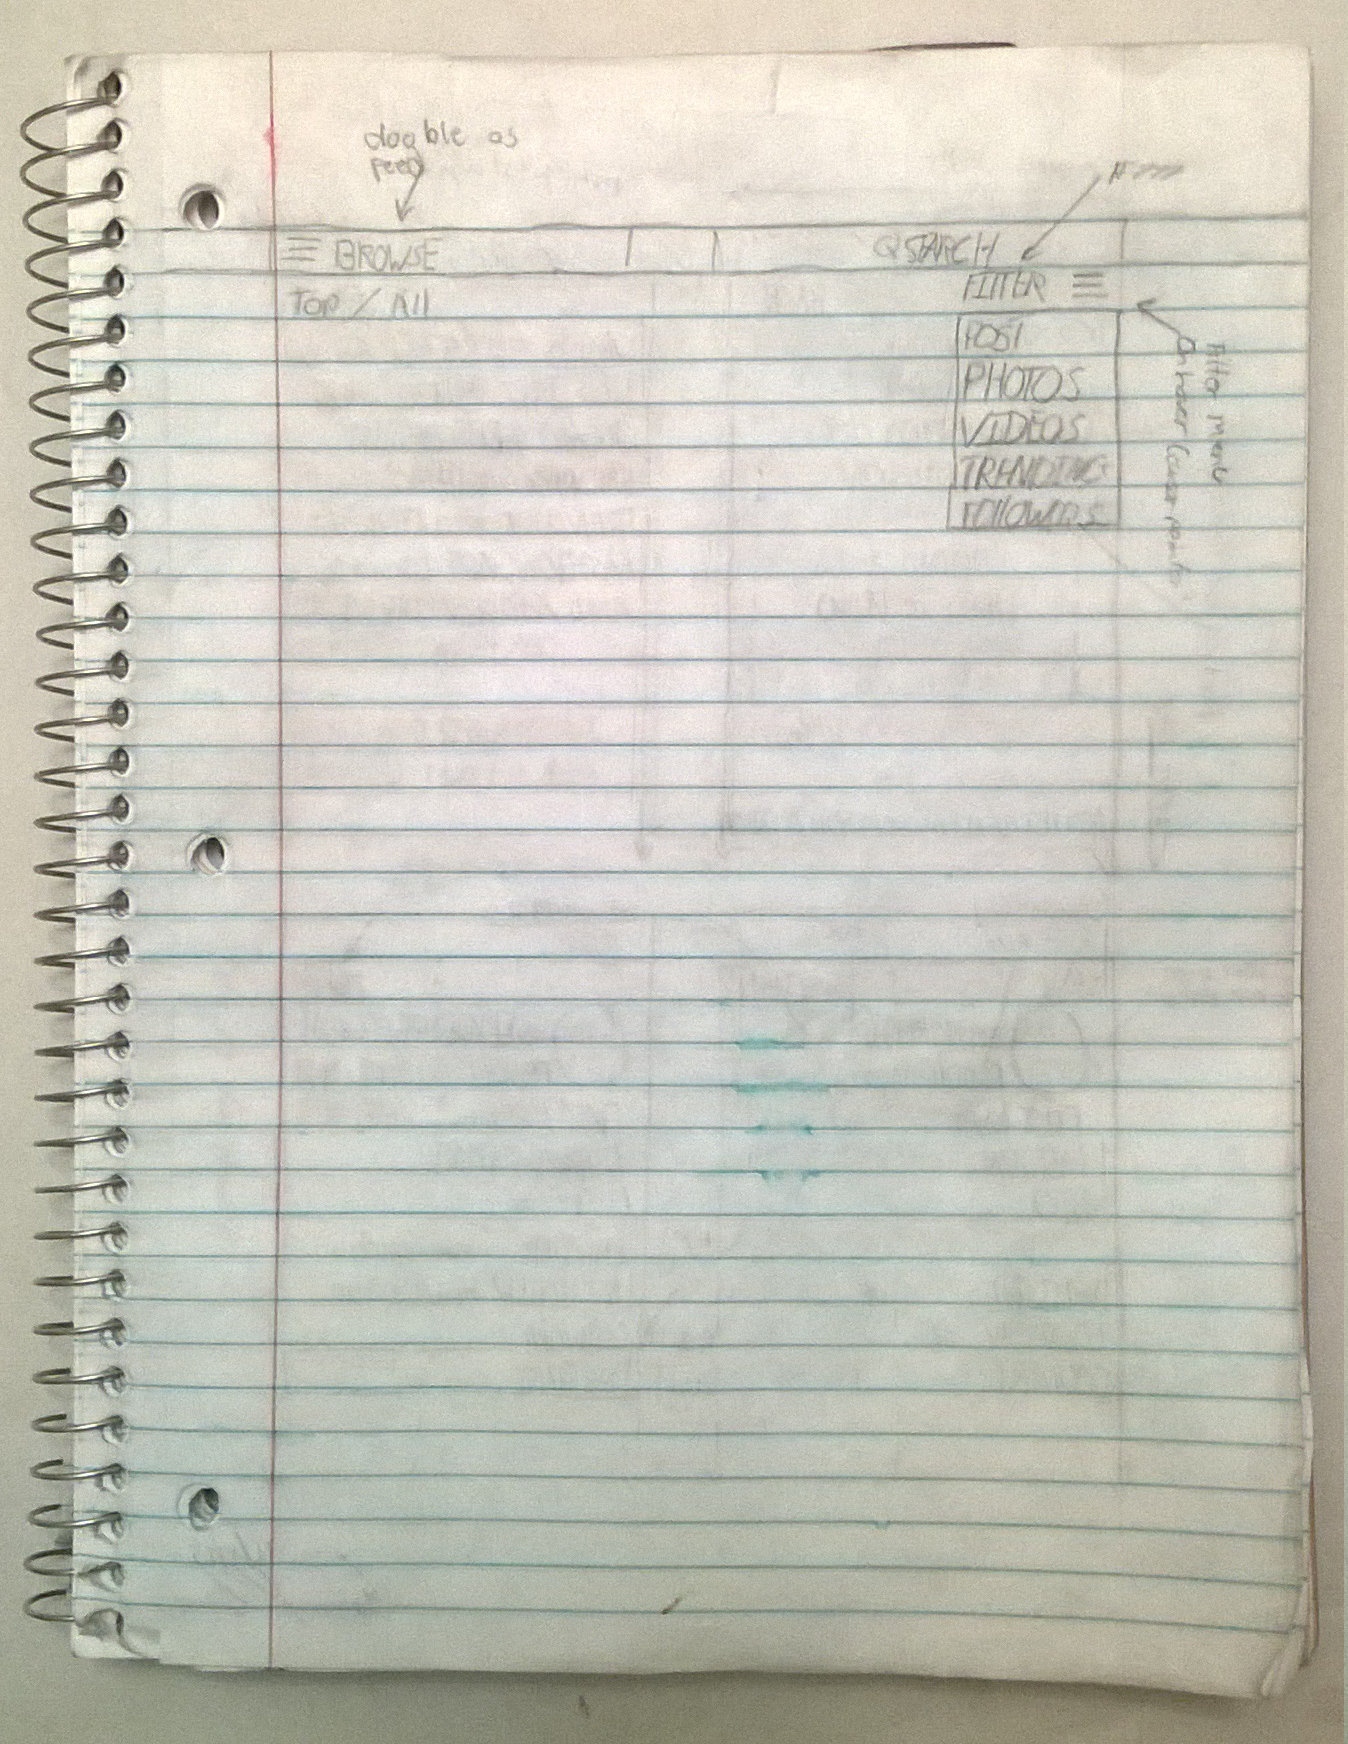 double as
feed
BROWSE
SEARCH
FILTER
TOP / All
POST
PHOTOS
VIDEOS
TRENDING
FOLLOWERS
Filter menu
On hover